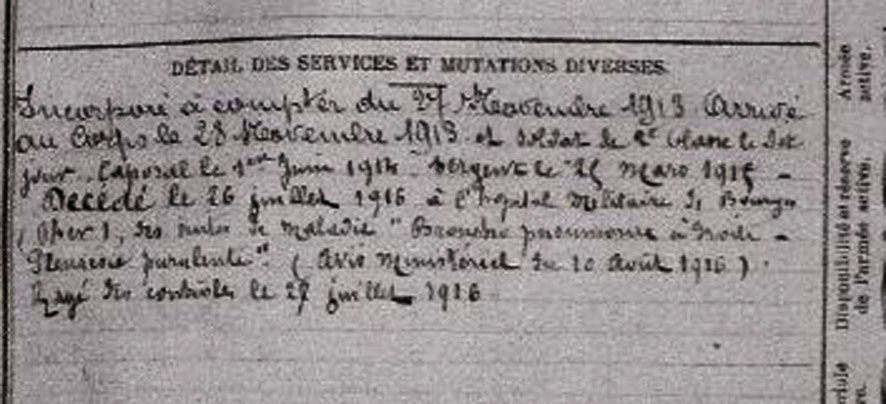 DÉTAIL DES SERVICES ET MUTATIONS DIVERSES.
Incorporé à compter du 27 Novembre 1913 Arrivé
au Corps le 28 Novembre 1913 et soldat de 2e Classe le dit
jour. Caporal le 1er Juin 1914 - Sergent le 25 Mars 1915 -
Décédé le 26 juillet 1916 à l'hôpital Militaire de Bourges
(Cher), des suites de maladie "Broncho pneumonie à droite -
Pleurésie purulente". (Avis Ministériel du 10 Août 1916).
Rayé des contrôles le 27 juillet 1916
Armée
active.
Disponibilité et réserve
de l'armée active.